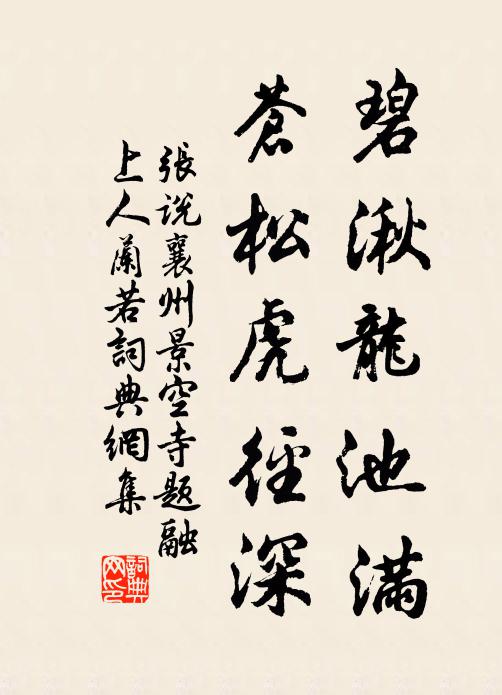 碧湫龍池滿
蒼松虎徑深
張说襄州景空寺題融
上人蘭若詞典網集
詞典網印